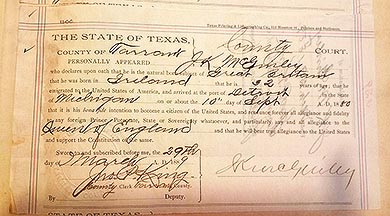 THE STATE OF TEXAS,
COUNTY OF Tarrant County COURT.
PERSONALLY APPEARED J K McGinley
who declares upon oath that he is the natural born subject of Great Britain
that he was born in Ireland is 32 years of age; that he
emigrated to the United States, and arrived at the port of Detroit in the State
of Michigan on or about the 10th day of Sept A. D. 1880
that it is bona fide his intention to become a citizen of the United States, and renounce forever all allegiance and fidelity
to any foreign Prince, Potentate, State or Sovereignty whatsoever, and particularly any and all allegiance to the
Queen of England and that he will bear true allegiance to the United States
and support the Constitution of the same.
Sworn to and subscribed before me, the 29th
day of March A. D. 1889
Jno P King
County Clerk Tarrant
By Deputy.
J K McGinley
STATE OF TEXAS